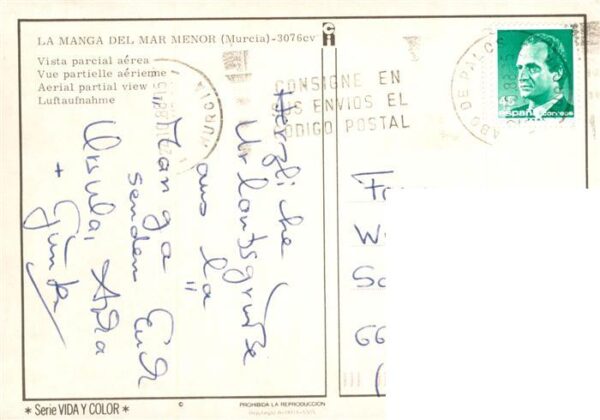 LA MANGA DEL MAR MENOR (Murcia)-3076cv
Vista parcial aérea
Vue partielle aérienne
Aerial partial view
Luftaufnahme
CONSIGNE EN
SUS ENVIOS EL
CODIGO POSTAL
CABO DE PALOS
MURCIA
45
España correos
Herzliche
Urlaubsgrüße
aus "la
Manga"
senden Euch
Ursula,
+ Günter
Fr
W
Sc
66
* Serie VIDA Y COLOR *
©
PROHIBIDA LA REPRODUCCION